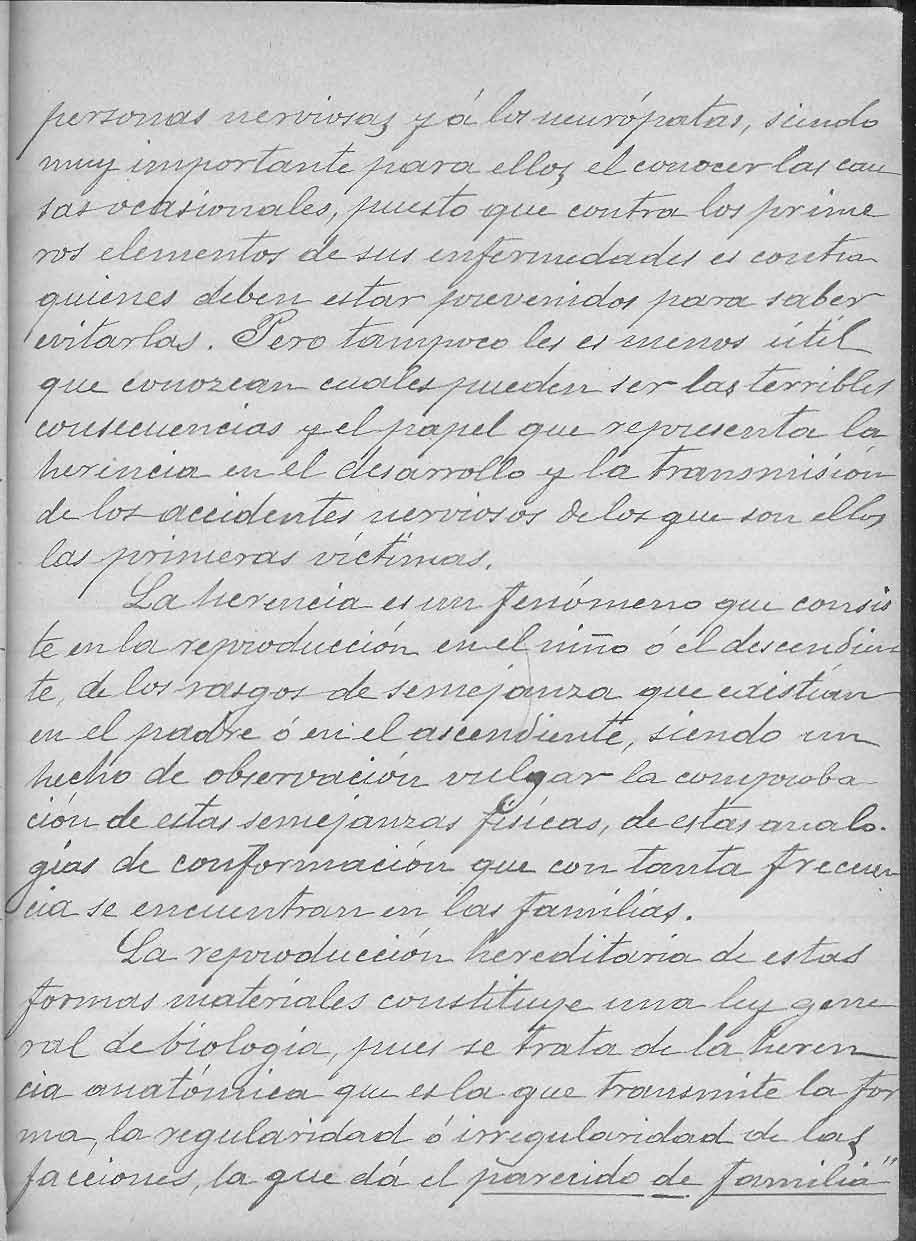 personas nerviosas y á los neurópatas, siendo
muy importante para ellos el conocer las cau
sas ocasionales, puesto que contra los prime
ros elementos de sus enfermedades es contra
quienes deben estar prevenidos para saber
evitarlas. Pero tampoco les es menos útil
que conozcan cuales pueden ser las terribles
consecuencias y el papel que representa la
herincia en el desarrollo y la transmisión
de los accidentes nerviosos de los que son ellos
las primeras víctimas.
La herencia es un fenómeno que consis
te en la reproducción en el niño ó el descendien
te, de los rasgos de semejanza que existían
en el padre ó en el ascendiente, siendo un
hecho de observación vulgar la comproba
ción de estas semejanzas físicas, de estas analo-
gías de conformación que con tanta frecuen
cia se encuentran en las familias.
La reproducción hereditaria de estas
formas materiales constituye una ley gene
ral de biología, pues se trata de la heren
cia anatómica que es la que transmite la for
ma, la regularidad ó irregularidad de las
facciones, la que dá el parecido de familia"